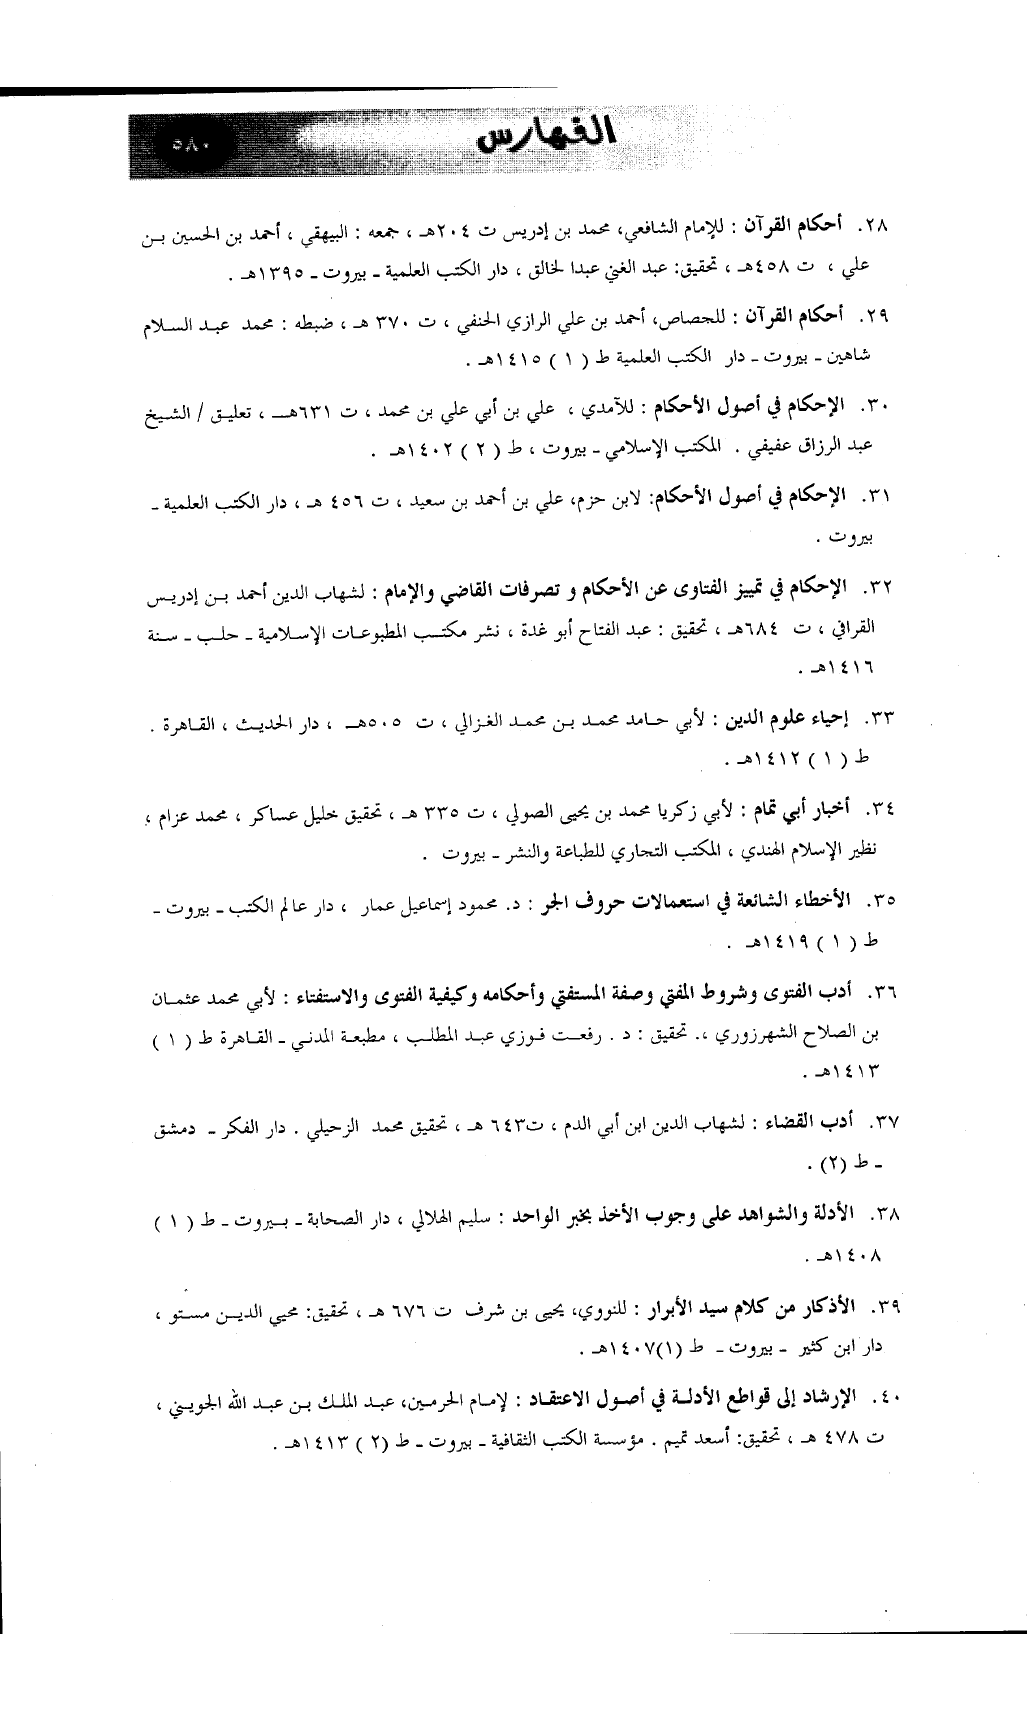 الفهارس
٥٨٠
٢٨. أحكام القرآن : للإمام الشافعي، محمد بن إدريس ت ٢٠٤هـ ، جمعه : البيهقي ، أحمد بن الحسين بـن
علي ، ت ٤٥٨هـ ، تحقيق: عبد الغني عبدا لخالق ، دار الكتب العلمية ـ بيروت ـ ١٣٩٥هـ .
٢٩. أحكام القرآن : للجصاص، أحمد بن علي الرازي الحنفي ، ت ٣٧٠ هـ ، ضبطه : محمد عبـد السـلام
شاهين ـ بيروت ـ دار الكتب العلمية ط ( ١ ) ١٤١٥هـ .
٣٠. الإحكام في أصول الأحكام : للآمدي ، علي بن أبي علي بن محمد ، ت ٦٣١هــ ، تعليـق / الشـيخ
عبد الرزاق عفيفي . المكتب الإسلامي ـ بيروت ، ط ( ٢ ) ١٤٠٢هـ .
٣١. الإحكام في أصول الأحكام: لابن حزم، علي بن أحمد بن سعيد ، ت ٤٥٦ هـ ، دار الكتب العلمية ـ
بيروت .
٣٢. الإحكام في تمييز الفتاوى عن الأحكام و تصرفات القاضي والإمام : لشهاب الدين أحمد بـن إدريـس
القرافي ، ت ٦٨٤هـ ، تحقيق : عبد الفتاح أبو غدة ، نشر مكتـب المطبوعـات الإسـلامية ـ حلـب ـ سـنة
١٤١٦هـ .
٣٣. إحياء علوم الدين : لأبي حـامد محمـد بـن محمـد الغـزالي ، ت ٥٠٥هــ ، دار الحديـث ، القـاهرة .
ط ( ١ ) ١٤١٢هـ .
٣٤. أخبار أبي تمام : لأبي زكريا محمد بن يحيى الصولي ، ت ٣٣٥ هـ ، تحقيق خليل عساكر ، محمد عزام ،
نظير الإسلام الهندي ، المكتب التجاري للطباعة والنشر ـ بيروت .
٣٥. الأخطاء الشائعة في استعمالات حروف الجر : د. محمود إسماعيل عمار ، دار عالم الكتب ـ بيروت ـ
ط ( ١ ) ١٤١٩هـ .
٣٦. أدب الفتوى وشروط المفتي وصفة المستفتي وأحكامه وكيفية الفتوى والاستفتاء : لأبي محمد عثمـان
بن الصلاح الشهرزوري ،. تحقيق : د . رفعـت فـوزي عبـد المطلب ، مطبعـة المدنـي ـ القـاهرة ط ( ١ )
١٤١٣هـ .
٣٧. أدب القضاء : لشهاب الدين ابن أبي الدم ، ت٦٤٣ هـ ، تحقيق محمد الزحيلي . دار الفكر ـ دمشق
ـ ط (٢) .
٣٨. الأدلة والشواهد على وجوب الأخذ بخبر الواحد : سليم الهلالي ، دار الصحابة ـ بـيروت ـ ط ( ١ )
١٤٠٨هـ .
٣٩. الأذكار من كلام سيد الأبرار : للنووي، يحيى بن شرف ت ٦٧٦ هـ ، تحقيق: محيي الديـن مسـتو ،
دار ابن كثير ـ بيروت ـ ط (١)١٤٠٧هـ .
٤٠. الإرشاد إلى قواطع الأدلـة في أصـول الاعتقـاد : لإمـام الحرمـين، عبـد الملـك بـن عبـد الله الجويـني ،
ت ٤٧٨ هـ ، تحقيق: أسعد تميم . مؤسسة الكتب الثقافية ـ بيروت ـ ط (٢ ) ١٤١٣هـ .